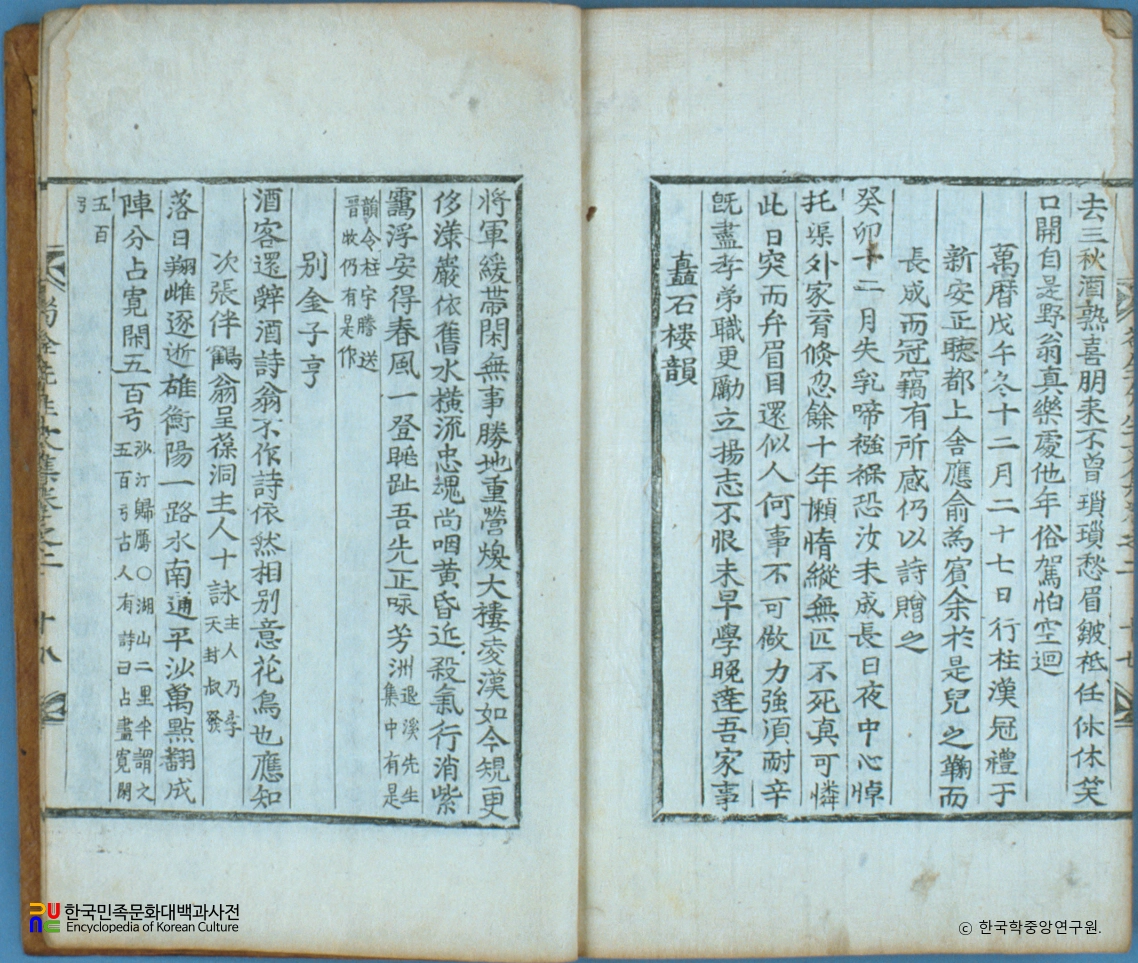 去三秋酒熟喜朋来不曾瑣瑣愁眉皺秪任休休笑
口開自是野翁真樂處他年俗駕怕空迴
萬曆戊午冬十二月二十七日行柱漢冠禮于
新安正聽都上舍應俞為賓余於是兒之鞠而
長成而冠竊有所感仍以詩贈之
癸卯十二月失乳啼襁褓恐汝未成長日夜中心悼
托渠外家育倐忽餘十年懶惰縱無匹不死真可憐
此日突而弁眉目還似人何事不可做力強須耐辛
旣盡孝弟職更勵立揚志不恨未早學晚達吾家事
矗石樓韻
將軍緩帶閑無事勝地重營煥大樓凌漢如今規更
侈漾巖依舊水橫流忠魂尚咽黄昏近殺氣行消紫
靄浮安得春風一登眺趾吾先正咏芳洲退溪先生
集中有是
韻令柱宇謄送
晋牧仍有是作
別金子亨
酒客還辭酒詩翁不作詩依然相别意花鳥也應知
次張伴鶴翁呈葆洞主人十詠主人乃李
天封叔發
落日翔雌逐逝雄衡陽一路水南通平沙萬點翻成
陣分占寛閑五百弓沙汀歸鴈〇湖山二里半謂之
五百弓古人有詩曰占盡寬閑
五百
弓
十八
한국민족문화대백과사전
Encyclopedia of Korean Culture
© 한국학중앙연구원.